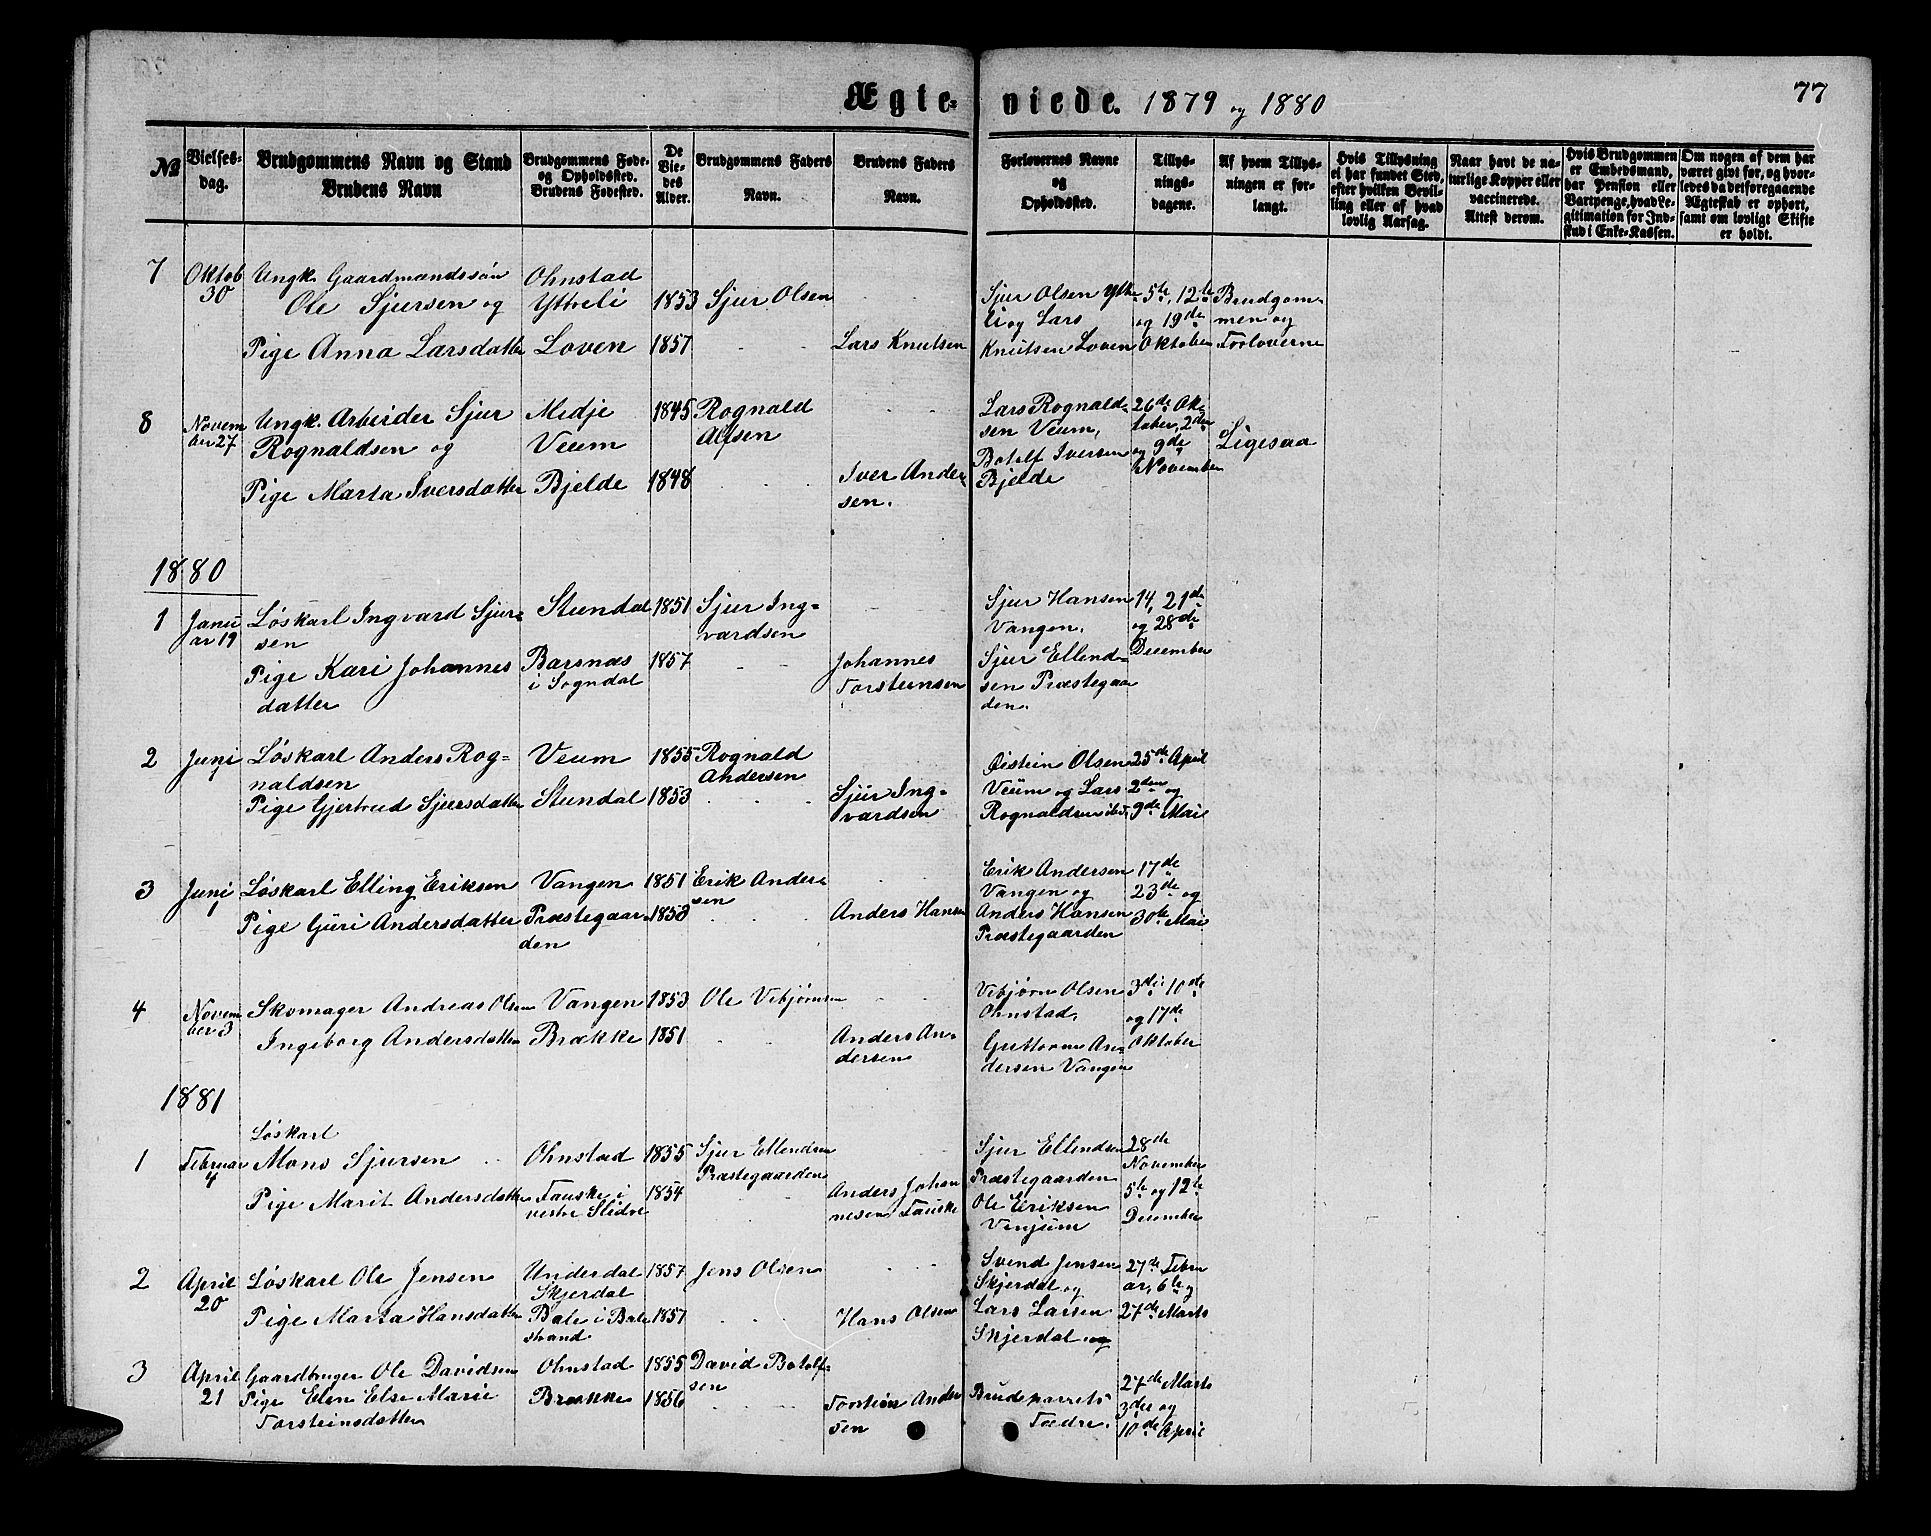 Ægte-viede. 1879 og 1880
77
№
Vielses-dag.
Brudgommens Navn og Stand
Brudens Navn
Brudgommens Føde-
og Opholdssted.
Brudens Fødested.
De
Vie-
des
Alder.
Brudgommens Faders
Navn.
Brudens Faders
Navn.
Forlovernes Navne
og
Opholdssted.
Tillys-
nings-
dagene.
Af hvem Tillys-
ningen er for-
langt.
Hvis Tillysning
ei har fundet Sted,
efter hvilken Bevil-
ling eller af hvad
lovlig Aarsag.
Naar havt de na-
turlige Kopper eller
vaccinerede.
Attest derom.
Hvis Brudgommen
er Embedsmand,
har Pension eller
Vartpenge, hvad Le-
gitimation for Ind-
skud i Enke-Kassen.
Om nogen af dem har
været givt før, og hvor-
ledes da det foregaaende
Ægteskab er ophørt,
samt om lovligt Skifte
er holdt.
7
Oktob
30
Ungk. Gaardmandssøn
Ole Sjursen og
Pige Anna Larsdatter
Ohnstad
Ytreli
Loven
1853
1857
Sjur Olsen
Lars Knutsen
Sjur Olsen Ytre
li og Lars
Knutsen Loven
5te, 12te
og 19de
Oktober
Brudgom-
men og
Forloverne
8
Novem
ber 27
Ungk. Arbeider Sjur
Rognaldsen og
Pige Marta Iversdatter
Midje
Veum
Bjelde
1845
1848
Rognald
Alfsen
Iver Ander
sen.
Lars Rognald-
sen Veum,
Botolf Iversen
Bjelde
26de Ok-
tober, 2den
og 9de
November
Ligesaa
1880
1
Janu
ar 19
Løskarl Ingvard Sjur-
sen
Pige Kari Johannes
datter
Stundal
Barsnæs
i Sogndal
1851
1857
Sjur Ing-
vardsen
Johannes
Torsteinsen
Sjur Hansen
Vangen.
Sjur Ellend-
sen Præstegaar
den.
14, 21de
og 28de
December
2
Juni
1
Løskarl Anders Rog-
naldsen
Pige Gjertrud Sjursdatter
Veum
Stundal
1855
1853
Rognald
Andersen
Sjur Ing-
vardsen
Øistein Olsen
Veum og Lars
Rognaldsen ibid.
25de April
2den og
9de Mai
3
Juni
Løskarl Elling Eriksen
Pige Guri Andersdatter
Vangen
Præstegaar
den
1851
1853
Erik Ander-
sen
Anders Hansen
Erik Andersen
Vangen og
Anders Hansen
Præstegaarden
17de
23de og
30te Mai
4
Novem
ber 3
Skomager Andreas Olsen
Ingeborg Andersdatter
Vangen
Brække
1853
1851
Ole Vibjørnsen
Anders An-
dersen
Vibjørn Olsen
Ohnstad,
Guttorm An-
dersen Vangen
3die 10de
og 17de
Oktober
1881
1
Februar
4
Løskarl
Mons Sjursen
Pige Marit Andersdatter
Ohnstad
Fauske i
vestre Slidre
1855
1854
Sjur Ellendsen
Præstegaarden
Anders Johan
nesen Fauske
Sjur Ellendsen
Præstegaarden
Ole Eriksen
Vinjum
28de
November
5te og 12te
December
2
April
20
Løskarl Ole Jensen
Pige Marta Hansdatter
Underdal
Skjerdal
Bale i Bale
strand
1857
1857
Jens Olsen
Hans Olsen
Svend Jensen
Skjerdal og
Lars Larsen
Skjerdal og
27de Febru
ar, 6te og
27de Marts
3
April
21
Gaardbruger Ole Davidsen
Pige Elen Else Marie
Torsteinsdatter
Ohnstad
Brække
1855
1856
David Botolf-
sen
Torstein Ander
sen
Brudeparrets
Fædre.
27de Marts
3die og
10de April